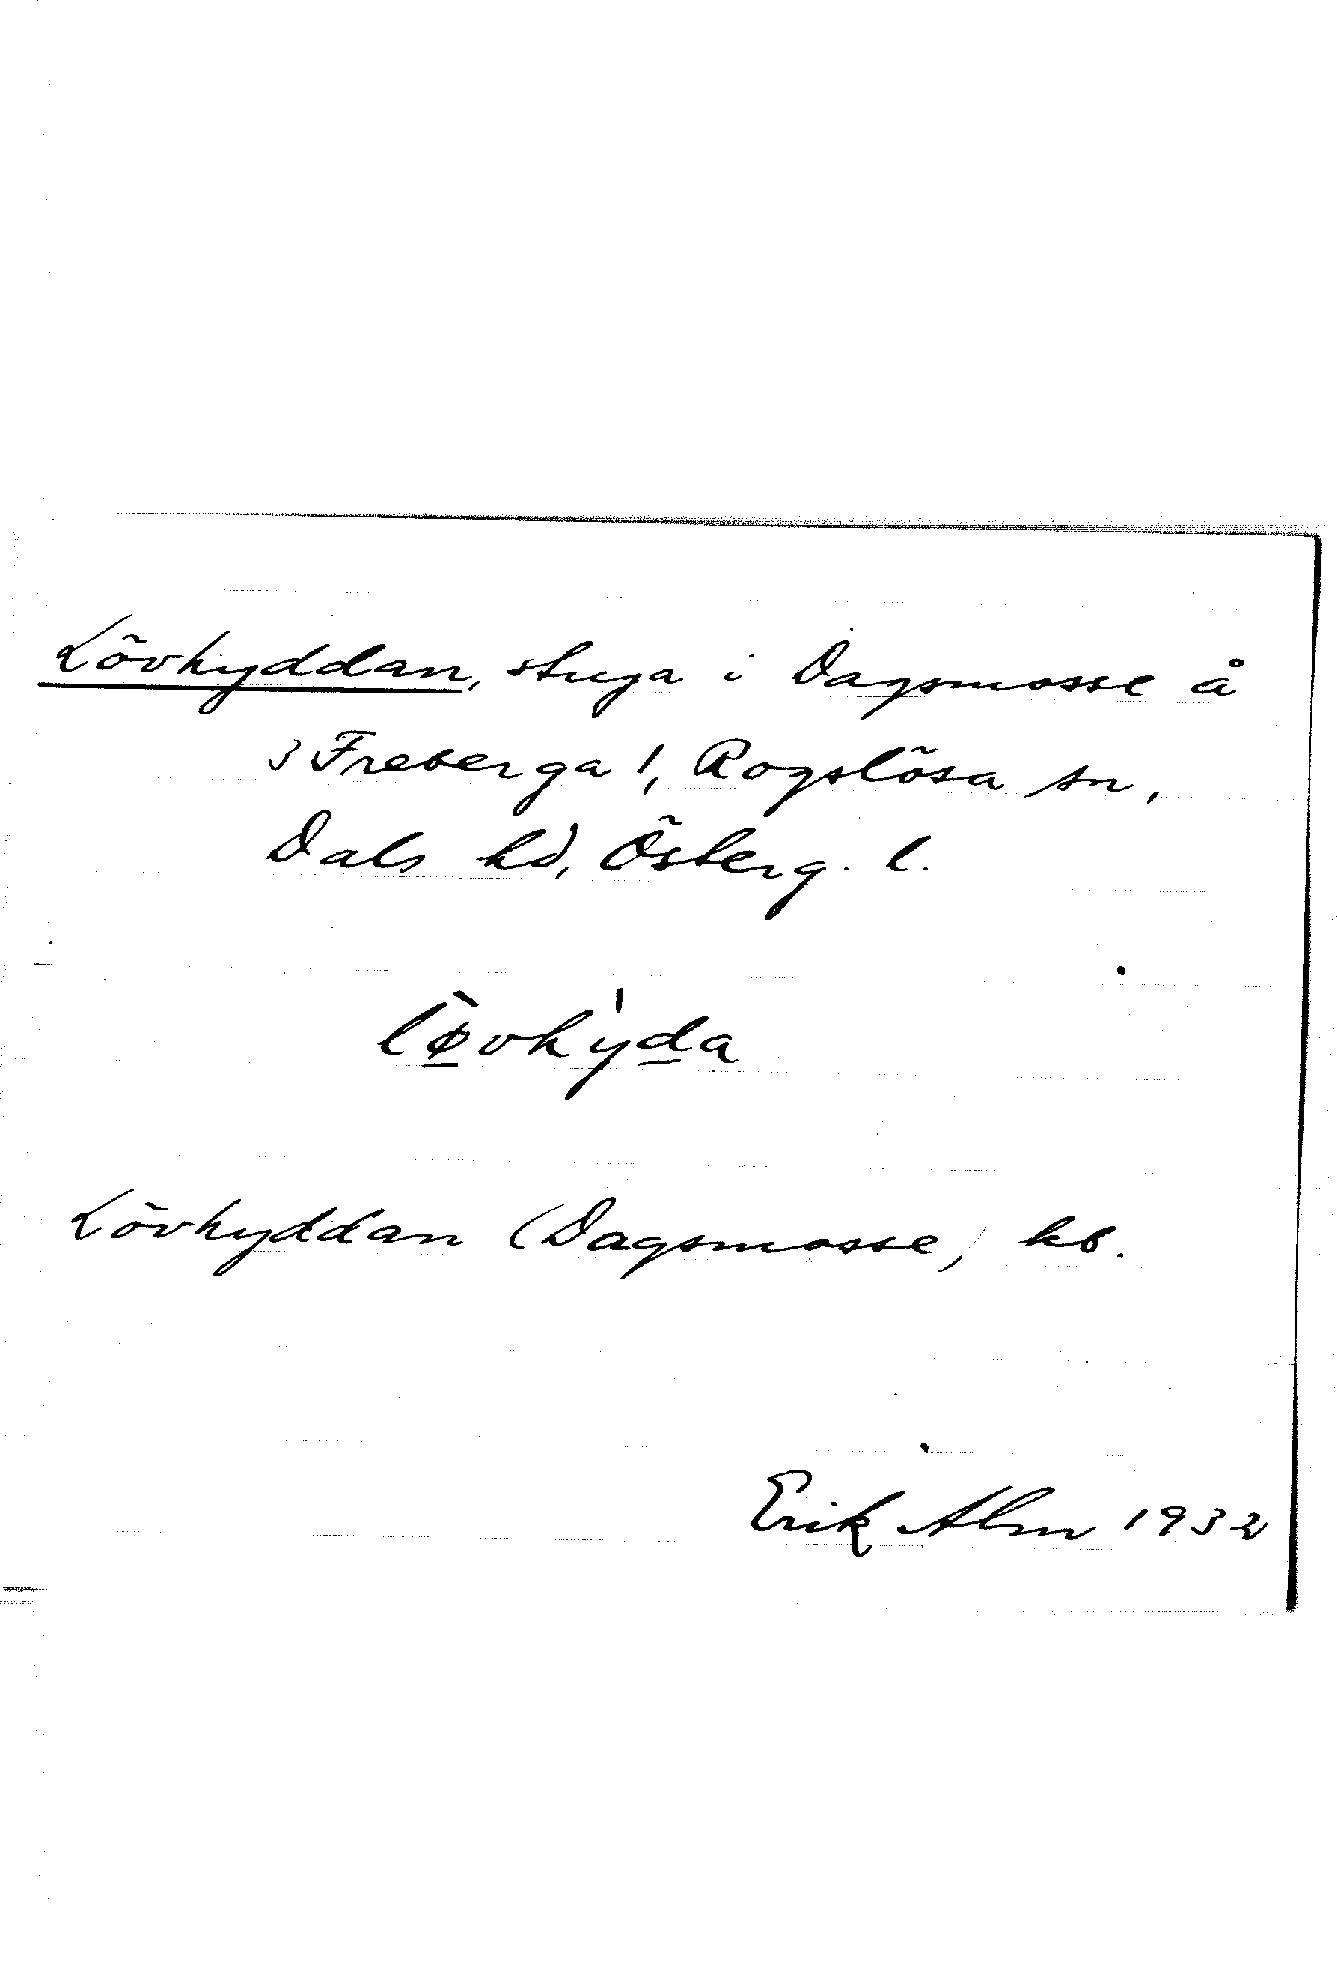 Lövhyddan, stuga i Dagsmosse å
3 Freberga 1, Rogslösa sn,
Dals hd, Österg. l.
lø̀vhy̍da
Lövhyddan (Dagsmosse) kb.
Erik Alm 1932